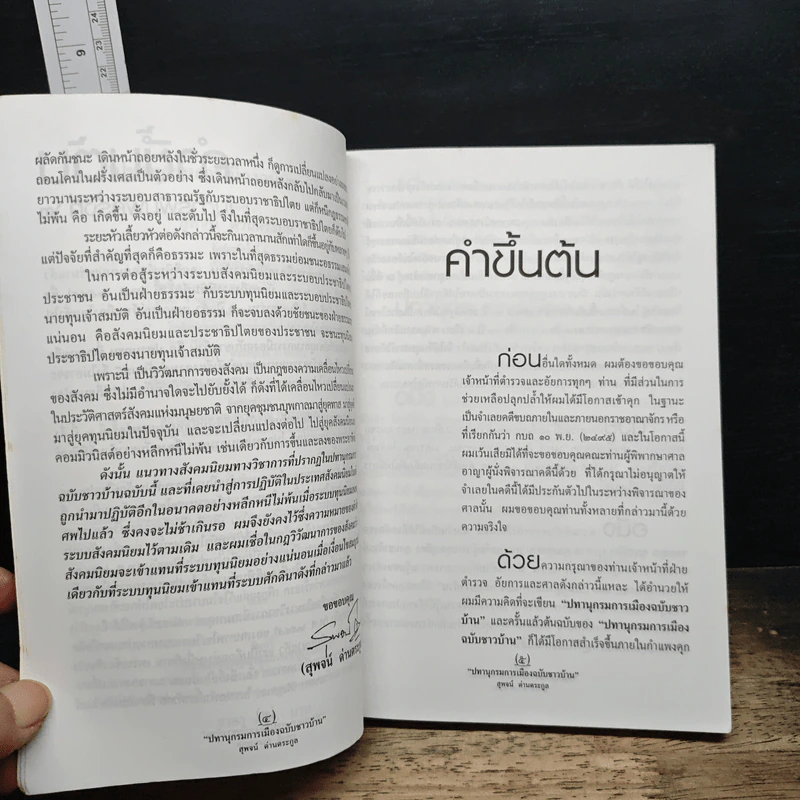 9
24
23
22
ผลัดกันชนะ เดินหน้าถอยหลังในชั่วระยะเวลาหนึ่ง ก็ดูการเปลี่ยนแปลง
ถอนโคนในฝรั่งเศสเป็นตัวอย่าง ซึ่งเดินหน้าถอยหลังกลับไปกลับมาเป็น
ยาวนานระหว่างระบอบสาธารณรัฐกับระบอบราชาธิปไตย แต่ก็หนีกฎ
ไม่พ้น คือ เกิดขึ้น ตั้งอยู่ และดับไป จึงในที่สุดระบอบราชาธิปไตยก็
ระยะหัวเลี้ยวหัวต่อดังกล่าวนี้จะกินเวลานานสักเท่าใดก็ขึ้นอยู่กับ
แต่ปัจจัยที่สำคัญที่สุดก็คือธรรมะ เพราะในที่สุดธรรมย่อมชนะอธรรม
ในการต่อสู้ระหว่างระบบสังคมนิยมและระบอบประชาธิปไตย
ประชาชน อันเป็นฝ่ายธรรมะ กับระบบทุนนิยมและระบอบประชาธิปไตย
นายทุนเจ้าสมบัติ อันเป็นฝ่ายอธรรม ก็จะจบลงด้วยชัยชนะของฝ่าย
แน่นอน คือสังคมนิยมและประชาธิปไตยของประชาชน จะชนะทุนนิยม
ประชาธิปไตยของนายทุนเจ้าสมบัติ
เพราะนี่ เป็นวิวัฒนาการของสังคม เป็นกฎของความเคลื่อนไหว
ของสังคม ซึ่งไม่มีอำนาจใดจะไปยับยั้งได้ ก็ดังที่ได้เคลื่อนไหวเปลี่ยนแปลง
ในประวัติศาสตร์สังคมแห่งมนุษยชาติ จากยุคชุมชนบุพกาลมาสู่ยุคทาส
มาสู่ยุคทุนนิยมในปัจจุบัน และจะเปลี่ยนแปลงต่อไป ไปสู่ยุคสังคมนิยม
คอมมิวนิสต์อย่างหลีกหนีไม่พ้น เช่นเดียวกับการขึ้นและลงของ
ดังนั้น แนวทางสังคมนิยมทางวิชาการที่ปรากฏในปทานุกรม
ฉบับชาวบ้านฉบับนี้ และที่เคยนำสู่การปฏิบัติในประเทศสังคมนิยม
ถูกนำมาปฏิบัติอีกในอนาคตอย่างหลีกหนีไม่พ้นเมื่อระบบทุนนิยม
ศพไปแล้ว ซึ่งคงจะไม่ช้าเกินรอ ผมจึงยังคงไว้ซึ่งความหมายของ
ระบบสังคมนิยมไว้ตามเดิม และผมเชื่อในกฎวิวัฒนาการของสังคม
สังคมนิยมจะเข้าแทนที่ระบบทุนนิยมอย่างแน่นอนเมื่อเงื่อนไข
เดียวกับที่ระบบทุนนิยมเข้าแทนที่ระบบศักดินาดังที่กล่าวมาแล้ว
ขอขอบคุณ
(สุพจน์ ด่านตระกูล
(๔)
"ปทานุกรมการเมืองฉบับชาวบ้าน"
สุพจน์ ด่านตระกูล
คำขึ้นต้น
ก่อนอื่นใดทั้งหมด ผมต้องขอขอบคุณ
เจ้าหน้าที่ตำรวจและอัยการทุกๆ ท่าน ที่มีส่วนในการ
ช่วยเหลือปลุกปล้ำให้ผมได้มีโอกาสเข้าคุก ในฐานะ
เป็นจำเลยคดีขบถภายในและภายนอกราชอาณาจักรหรือ
ที่เรียกกันว่า กบถ ๑๐ พ.ย. (๒๔๙๕) และในโอกาสนี้
ผมเว้นเสียมิได้ที่จะขอขอบคุณคณะท่านผู้พิพากษาศาล
อาญาผู้นั่งพิจารณาคดีนี้ด้วย ที่ได้กรุณาไม่อนุญาตให้
จำเลยในคดีนี้ได้มีประกันตัวไปในระหว่างพิจารณาของ
ศาลนั้น ผมขอขอบคุณท่านทั้งหลายที่กล่าวมานี้ด้วย
ความจริงใจ
ด้วยความกรุณาของท่านเจ้าหน้าที่ฝ่าย
ตำรวจ อัยการและศาลดังกล่าวนี้แหละ ได้อำนวยให้
ผมมีความคิดที่จะเขียน "ปทานุกรมการเมืองฉบับชาว
บ้าน" และครั้นแล้วต้นฉบับของ "ปทานุกรมการเมือง
ฉบับชาวบ้าน" ก็ได้มีโอกาสสำเร็จขึ้นภายในกำแพงคุก
(๕)
"ปทานุกรมการเมืองฉบับชาวบ้าน"
สุพจน์ ด่านตระกูล